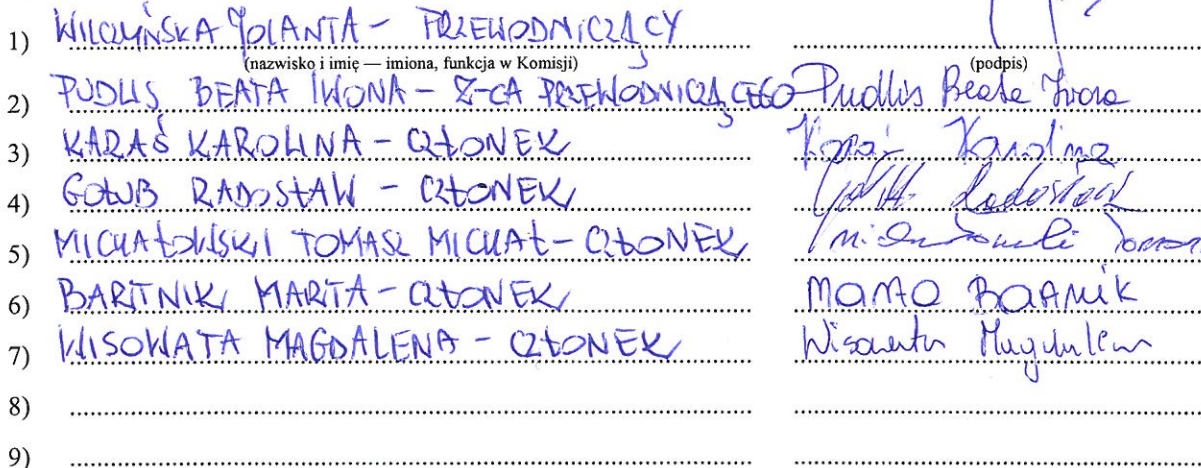 1) WILCZYŃSKA JOLANTA – PRZEWODNICZĄCY
(nazwisko i imię — imiona, funkcja w Komisji) (podpis)
2) PUDLIS BEATA IWONA – Z-CA PRZEWODNICZĄCEGO Pudlis Beata Iwona
3) KARAŚ KAROLINA – CZŁONEK Karaś Karolina
4) GOŁUB RADOSŁAW – CZŁONEK Radosław
5) MICHAŁOWSKI TOMASZ MICHAŁ – CZŁONEK
6) BARTNIK MARTA – CZŁONEK Marta Bartnik
7) WISOWATA MAGDALENA – CZŁONEK Wisowata Magdalena
8)
9)